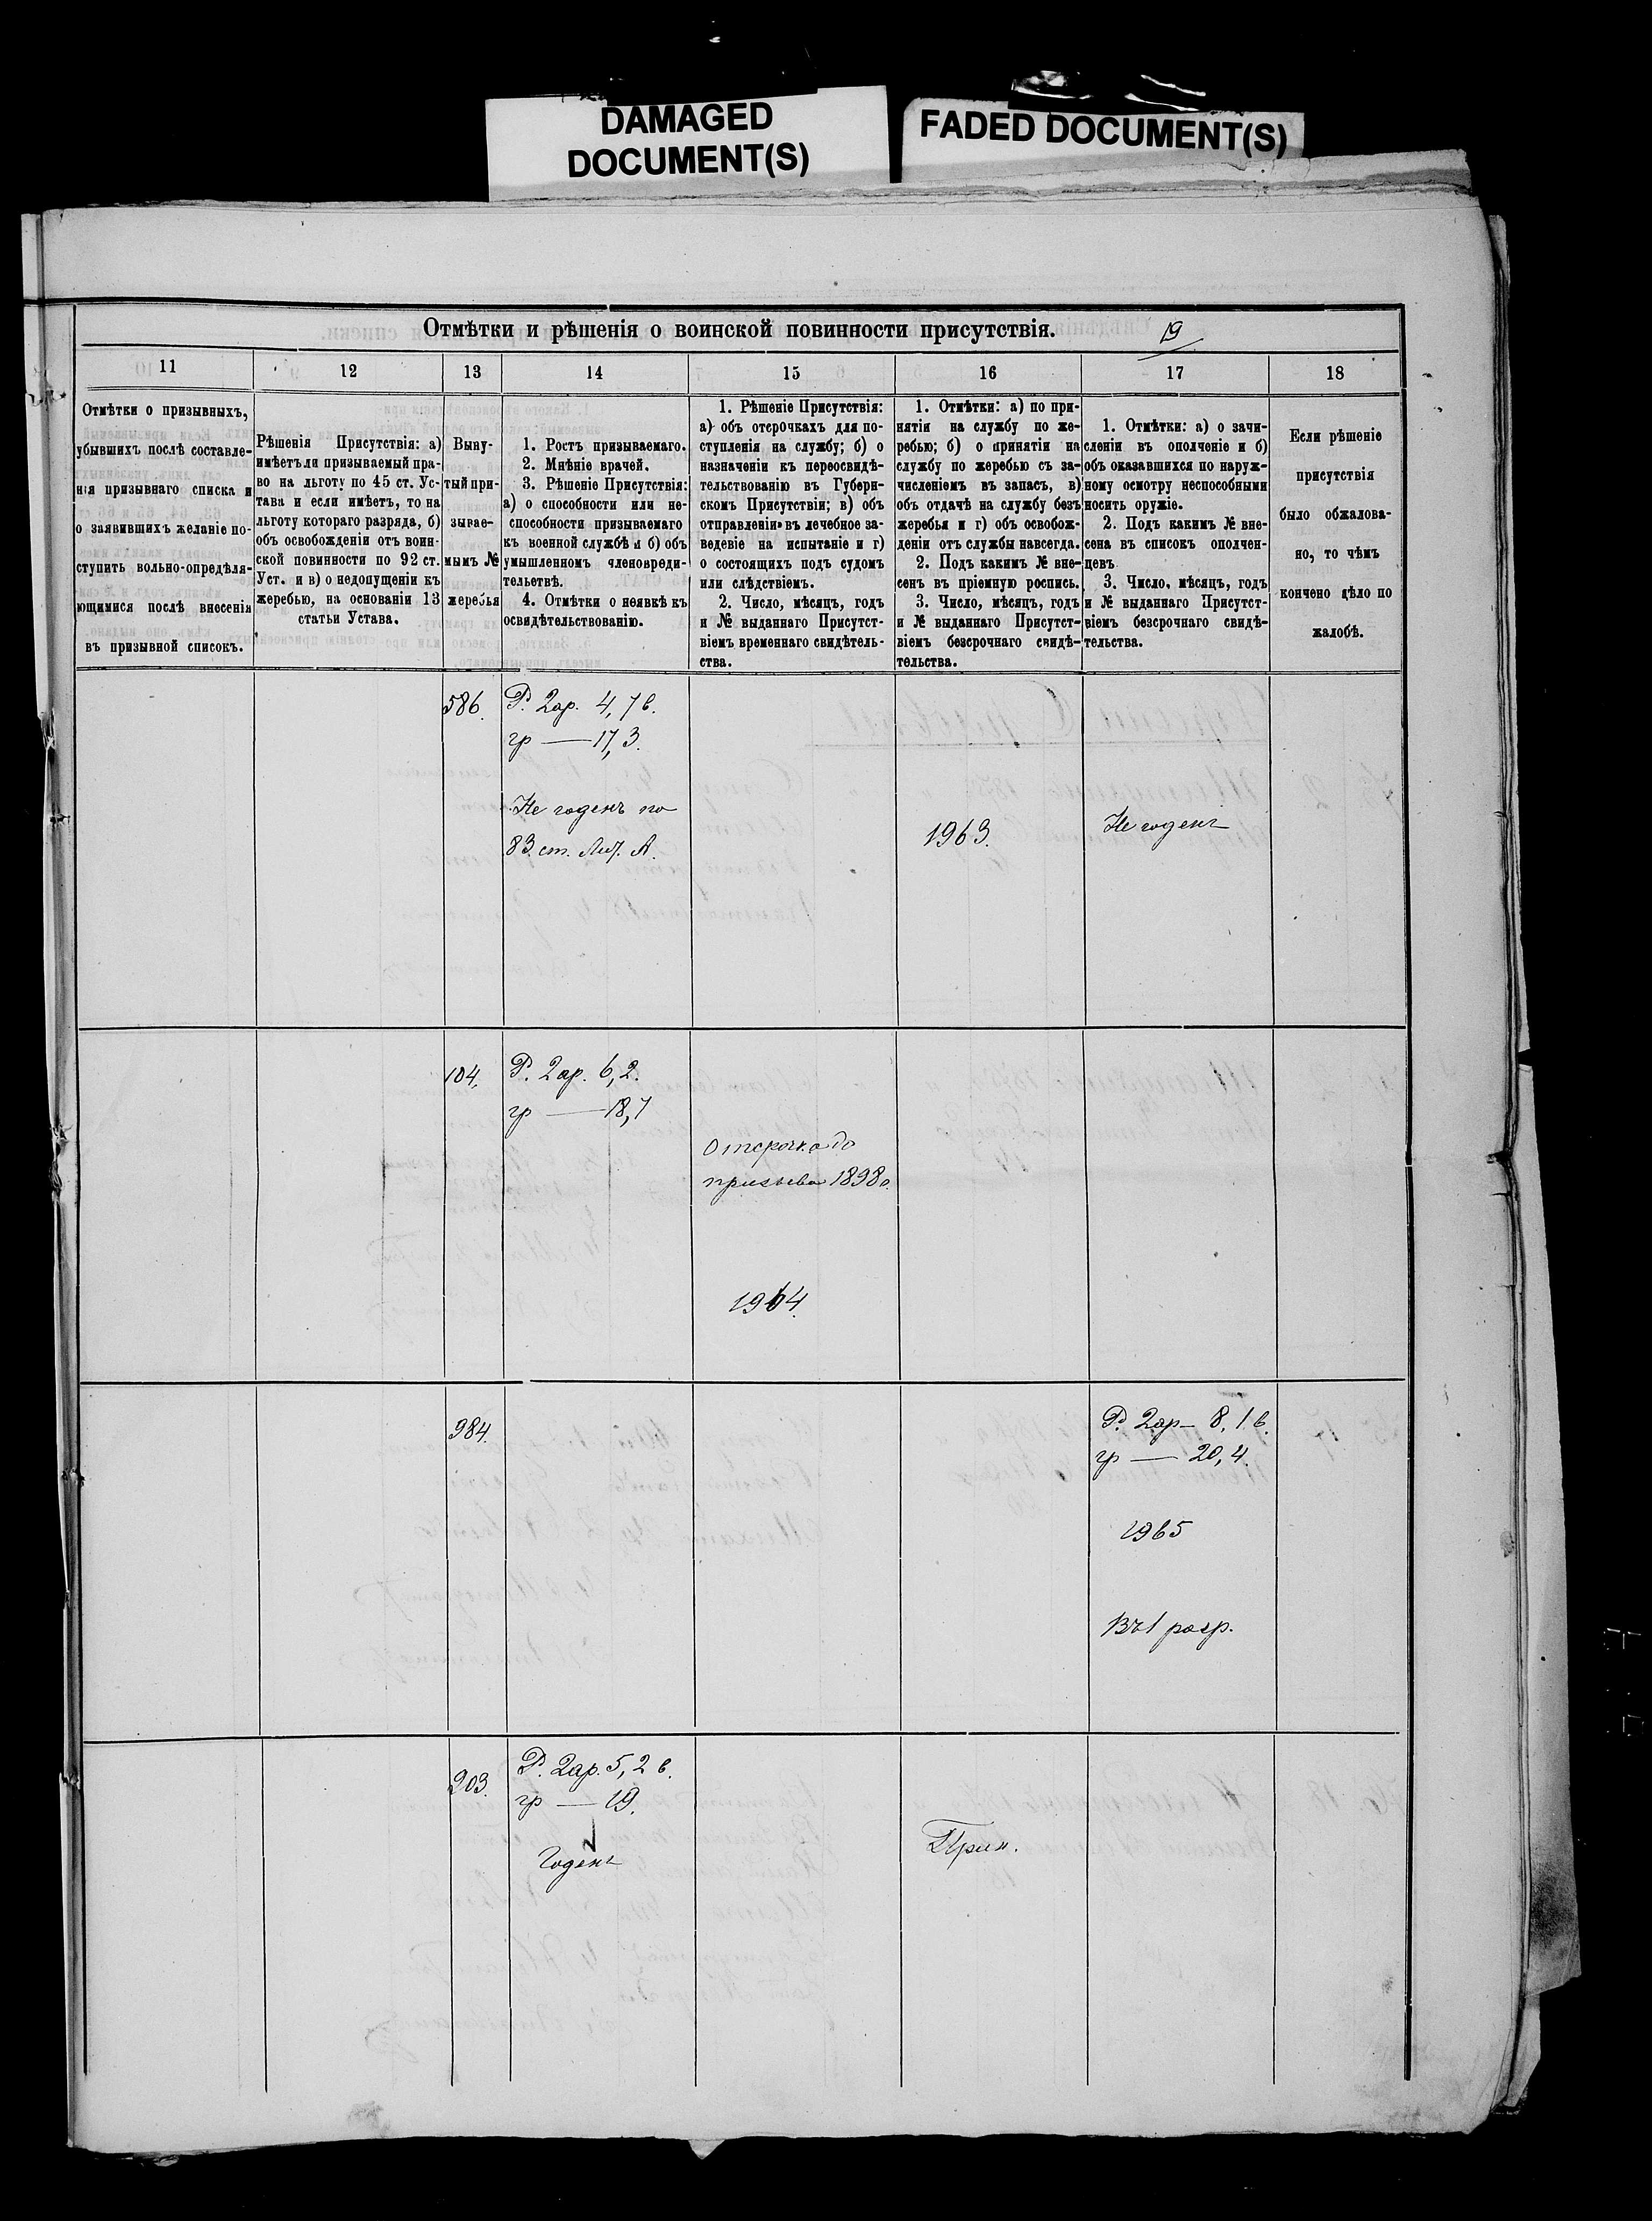 DAMAGED
DOCUMENT(S)
FADED DOCUMENT(S)
Отмѣтки и рѣшенія о воинской повинности присутствія.
19
11
12
13
14
15
16
17
18
Отмѣтки о призывныхъ,
убывшихъ послѣ составле-
нія призывнаго списка и
о заявившихъ желаніе по-
ступить вольно-опредѣля-
ющимися послѣ внесенія
въ призывной списокъ.
Рѣшенія Присутствія: а)
имѣетъли призываемый пра-
во на льготу по 45 ст. Ус-
тава и если имѣетъ, то на
льготу котораго разряда, б)
объ освобожденіи отъ воин-
ской повинности по 92 ст.
Уст. и в) о недопущеніи къ
жеребью, на основаніи 13
статьи Устава.
Выну-
тый при-
зывае-
мымъ №
жеребья
1. Ростъ призываемаго.
2. Мнѣніе врачей.
3. Рѣшеніе Присутствія:
а) о способности или не-
способности призываемаго
къ военной службѣ и б) объ
умышленномъ членовреди-
тельетвѣ.
4. Отмѣтки о неявкѣ къ
освидѣтельствованію.
1. Рѣшеніе Присутствія:
а) объ отсрочкахъ для по-
ступленія на службу; б) о
назначеніи къ переосвидѣ-
тельствованію въ Губерн-
скомъ Присутствіи; в) объ
отправленіи въ лечебное за-
ведевіе на испытаніе и г)
о состоящихъ подъ судомъ
или слѣдствіемъ.
2. Число, мѣсяцъ, годъ
и № выданнаго Присутст-
віемъ временнаго свидѣтель-
ства.
1. Отмѣтки: а) по при-
нятіи на службу по же-
ребью; б) о принятіи на
службу по жеребью съ за-
численіемъ въ запасъ, в)
объ отдачѣ на службу безъ
жеребья и г) объ освобож-
деніи отъ службы навсегда.
2. Подъ какимъ № вне-
сенъ въ пріемную роспись.
3. Число, мѣсяцъ, годъ
и № выданнаго Присутст-
віемъ безсрочнаго свидѣ-
тельства.
1. Отмѣтки: а) о зачи-
сленіи въ ополченіе и б)
объ оказавшихся по наруж-
ному осмотру неспособными
носить оружіе.
2. Подъ какимъ № вне-
сена въ список ополчен-
цевъ.
3. Число, мѣсяцъ, годъ
и № выданнаго Присутст-
віемъ безсрочнаго свидѣ-
тельства.
Если рѣшеніе
присутствія
было обжалова-
но, то чѣмъ
кончено дѣло по
жалобѣ.
586.
Р. 2ар. 4,7 в.
гр — 17,3.
Не годенъ по
83 ст. Лит. А.
1963.
Не годенъ
104,
Р. 2ар. 6,2.
гр — 18,7
Отсрочка до
призыва 1898 г.
1964.
984.
Р. 2ар — 8,1 в.
гр — 20,4.
1965
Въ 1 разр.
203.
Р. 2ар. 5,2 в.
гр — 19.
Годенъ
Прин.